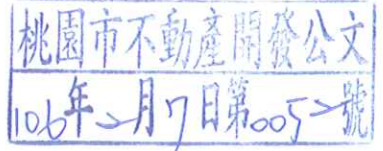 桃園市不動產開發公文
106年2月7日第0052號